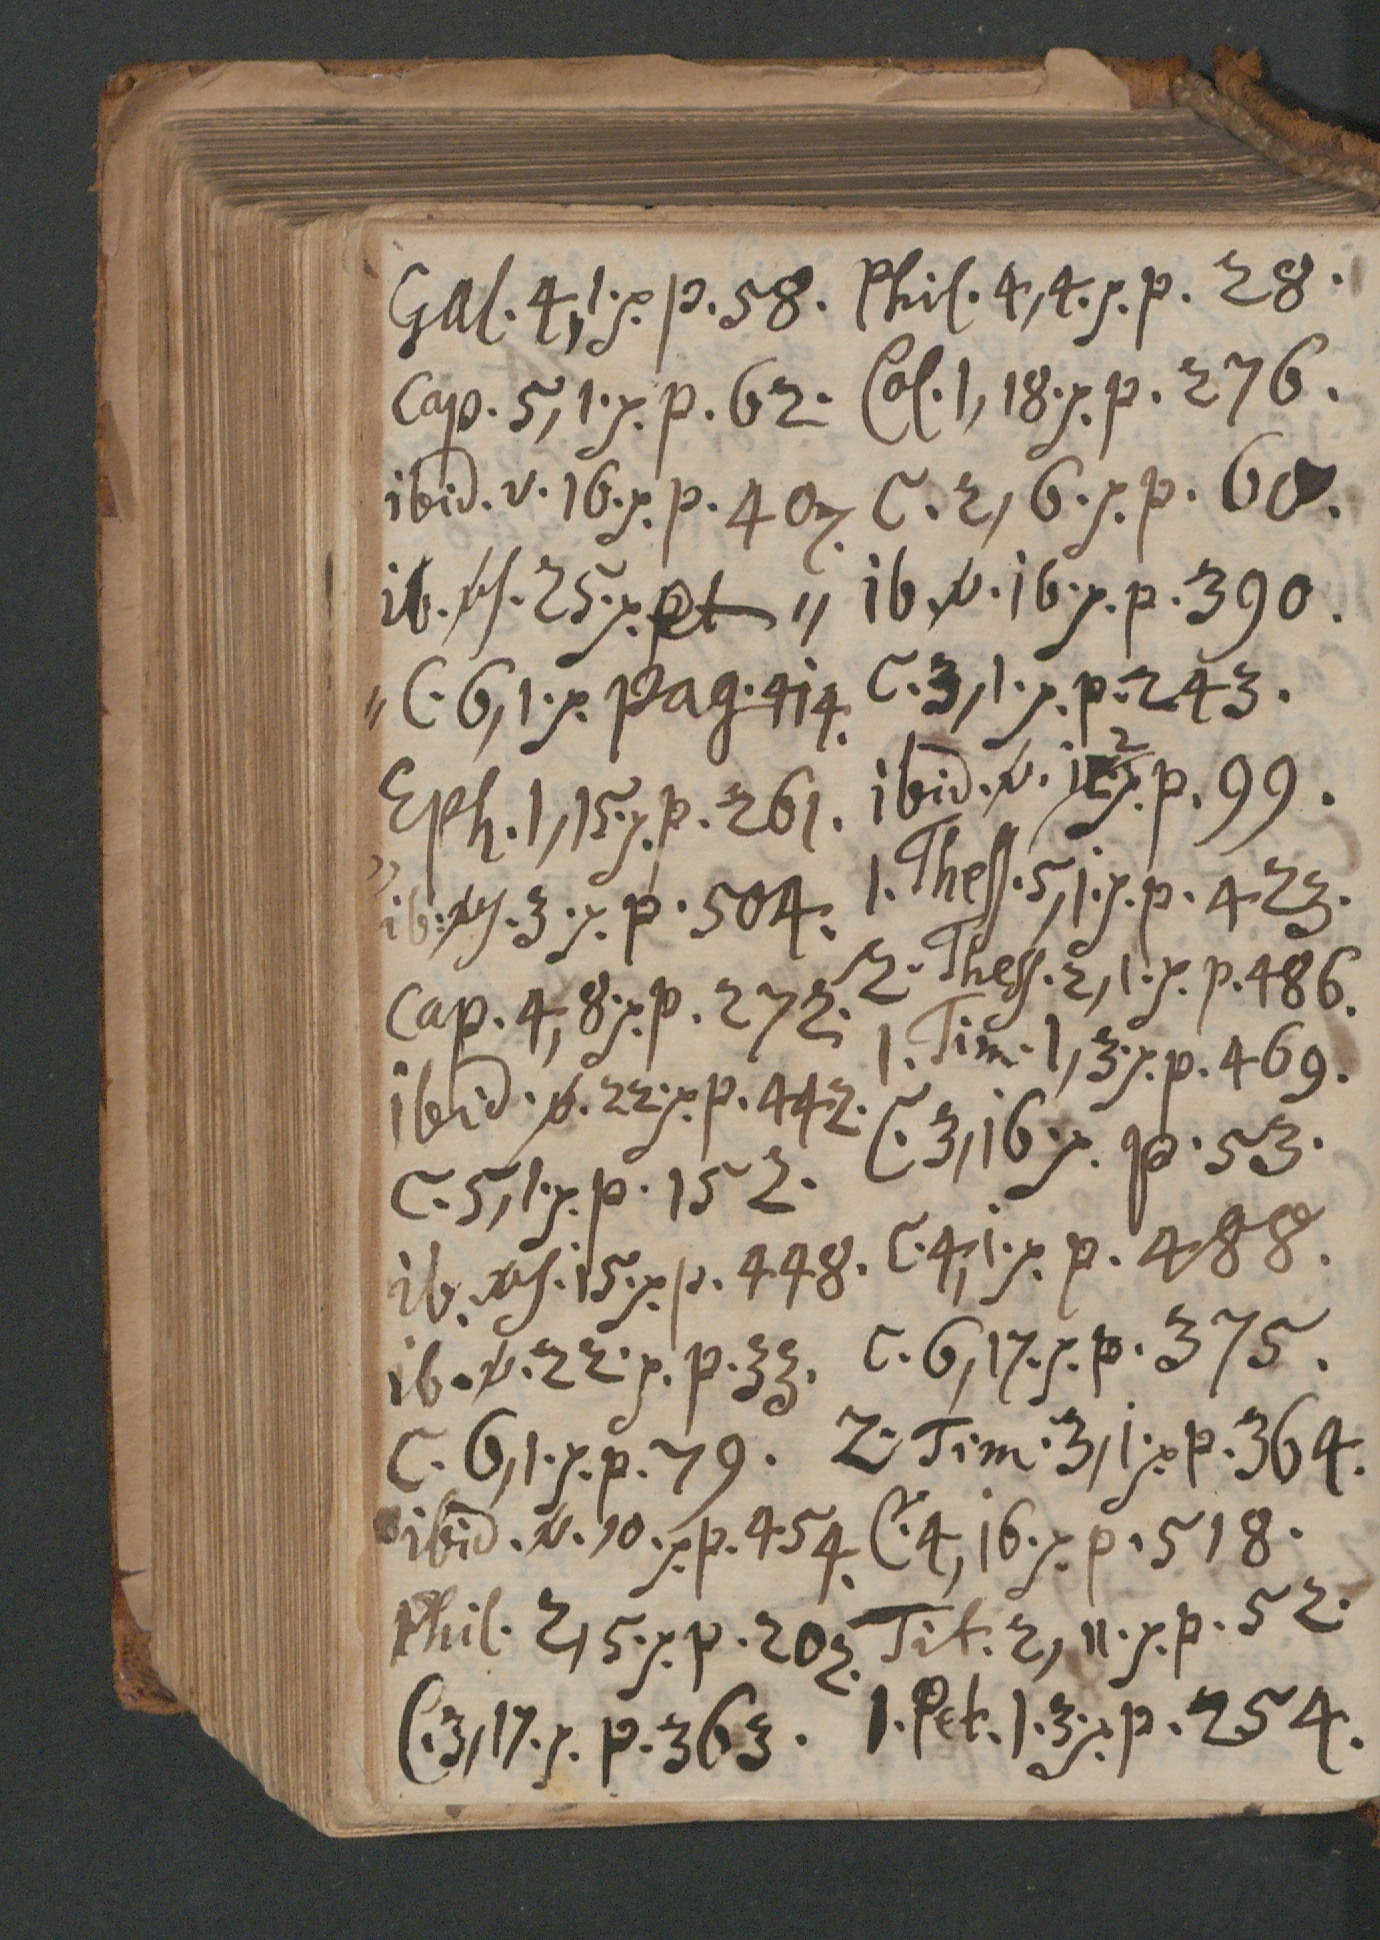 Gal. 4,1. p. 58.
Cap. 5,1. p. 62.
ibid. v. 16. p. 407.
ib. vs. 25. et "
" C. 6,1. pag. 414.
Eph. 1,15. p. 261.
ib: vs. 3. p. 504.
Cap. 4,8. p. 272.
ibid. v. 22. p. 442.
C. 5,1. p. 152.
ib. vs. 15. p. 448.
ib. v. 22. p. 33.
C. 6,1. p. 79.
ibid. v. 10. p. 454.
Phil. 2,5. p. 202.
C. 3,17. p. 363.
Phil. 4,4. p. 28.
Col. 1,18. p. 276.
C. 2,6. p. 60.
ib. v. 16. p. 390.
C. 3,1. p. 243.
ibid. v. 12 p. 99.
1. Thess. 5,1. p. 423.
2. Thess. 2,1. p. 486.
1. Tim. 1,3. p. 469.
C. 3,16. p. 53.
C. 4,1. p. 488.
C. 6,17. p. 375.
2. Tim. 3,1. p. 364.
C. 4,16. p. 518.
Tit. 2,11. p. 52.
1. Pet. 1.3. p. 254.